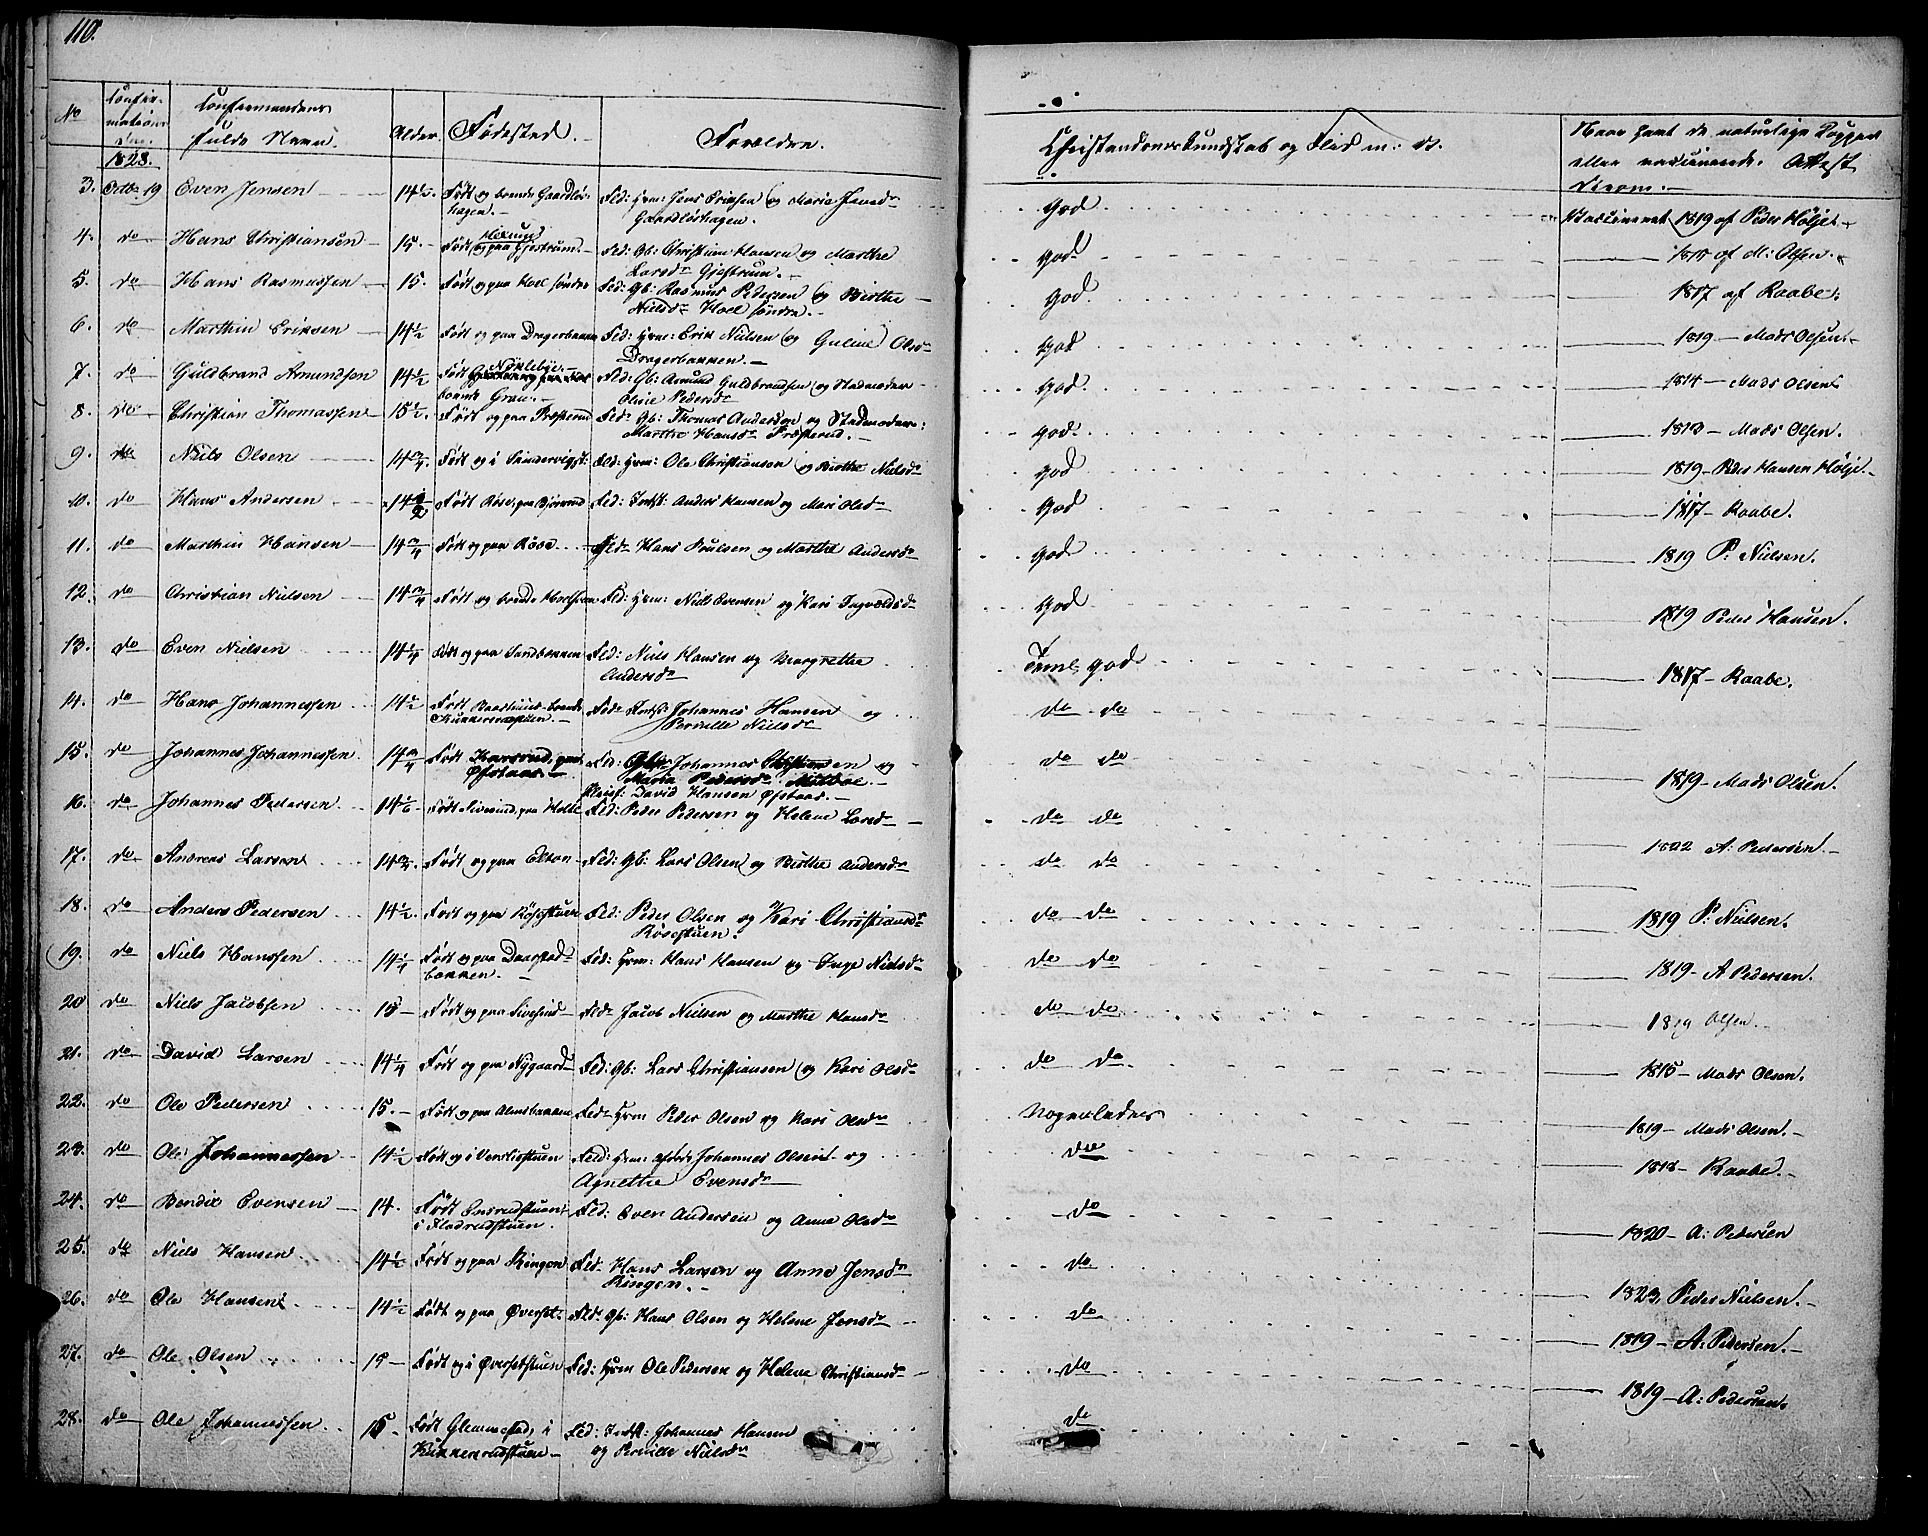 110.
No
Confir-
mations
Dag.
Confirmandens
fulde Navn.
Alder.
Fødested.
Forældre.
Christendoms Kundskab og Flid m: v.
Have havt de naturlige Kopper
eller vaccinerede. Attest
derom.
1828.
3. Octbr 19 Even Jensen 14½ Født og boende Gaardløs-
hagen. Fld: Hrm: Jens Eriksen og Marie Jensdr
Gaardløshagen. god Vaccineret 1819 af Peder Hölje.
4. do Hans Christiansen 15. Født og paa Gjestrum. Fld: Gb: Christian Hansen og Marthe
Larsdr Gjestrum. god af M: Olsen.
5. do Hans Rasmussen 15. Født og paa Hoel søndre Fld: Gb: Rasmus Pedersen og Birthe
Nielsdr Hoel søndre. god 1817 af Raabe.
6. do Marthin Eriksen 14½ Født og paa Dragerbakken Fld: Hrm: Erik Nielsen og Guline Olsdr
Dragerbakken. god 1819 Mads Olsen.
7. do Guldbrand Amundsen 14½ Født
boende Fld: Gb: Amund Guldbrandsen og Stedmoder
Oline Pedersdr god 1814 Mads Olsen
8. do Christian Thomassen 15½. Født og paa Præsterud Fld: Gb: Thomas Andersen og Stedmoder:
Marthe Hansdr Præsterud. god. 1813 Mads Olsen.
9. do Niels Olsen 14¾. Født og i Fld: Hrm: Ole Christiansen og Birthe Nielsdr god 1819 Peder Hansen Hölje.
10. do Hans Andersen 14½ Født Røse, paa Fld: Inds: Anders Hansen og Mari Olsdr god 1817 Raabe.
11. do Marthin Hansen 14¾ Født og paa Røse Fld: Hans Poulsen og Marthe Andersdr god 1819 P: Nielsen.
12. do Christian Nielsen 14¾ Født og boende Fld: Hrm: Niels Evensen og Kari Ingvoldsdr god 1819 Peder Hansen.
13. do Even Nielsen 14¼ Født og paa Sandbakken Fld: Niels Hansen og Margrethe
Andersdr Teml. god 1817 Raabe.
14. do Hans Johannessen 14½ Født boende
Fld: Inds: Johannes Hansen og
Pernille Nielsdr do do
15. do Johannes Johannessen 14¾ Født paa
Øfstaas. Fld: Johannes Christiansen og
Maria Pedersdr
Pleief: David Hansen Øfstaas. do do 1819 Mads Olsen.
16. do Johannes Pedersen 14½ Født Sivesind, paa Holte Fld: Peder Pedersen og Helene Larsdr do do 1822 A: Pedersen.
17. do Andreas Larsen 14¾. Født og paa Fld: Gb: Lars Olsen og Birthe Andersdr do do
18. do Anders Pedersen 14½. Født og paa Røsestuen Fld: Peder Olsen og Kari Christiansdr
Røsestuen. do do 1819 P: Nielsen.
19. do Niels Hanssen 14¼ Født og paa
bakken. Fld: Hrm: Hans Hansen og Inge Nielsdr do do 1819 A Pedersen.
20 do Niels Jacobsen 15 Født og paa Sivesind Fld: Jacob Nielsen og Marthe Hansdr do do 1819 Olsen.
21. do David Larsen 14¼ Født og paa Nygaard Fld: Gb: Lars Christiansen og Kari Olsdr do do. 1815 Mads Olsen.
22. do Ole Pedersen 15. Født og paa Fld: Hrm Peder Olsen og Kari Olsdr Nogenledes 1819 Mads Olsen.
23. do Ole Johannessen 14½ Født og i Fld: Hrm: Johannes Olsen og
Agnethe Evensdr do Raabe.
24. do Bendix Evensen 14. Født
i Fladrudstuen. Fld: Even Andersen og Anne Olsdr do 1820 A: Pedersen
25. do Niels Hansen 14½ Født og paa Ringen Fld: Hans Larsen og Anne Jensdr
Ringen. do 1823, Peder Nielsen.
26. do Ole Hansen 14½ Født og paa Øverset. Fld: Gb: Hans Olsen og Helene Jensdr do 1819 A: Pedersen.
27. do Ole Olsen 15 Født og i Øversetstuen Fld: Hrm Ole Pedersen og Helene Christiansdr do 1819 A: Pedersen.
28. do Ole Johannessen 15. Født Glemmestad, i
Fld: Inds: Johannes Hansen
og Pernille Nielsdr do